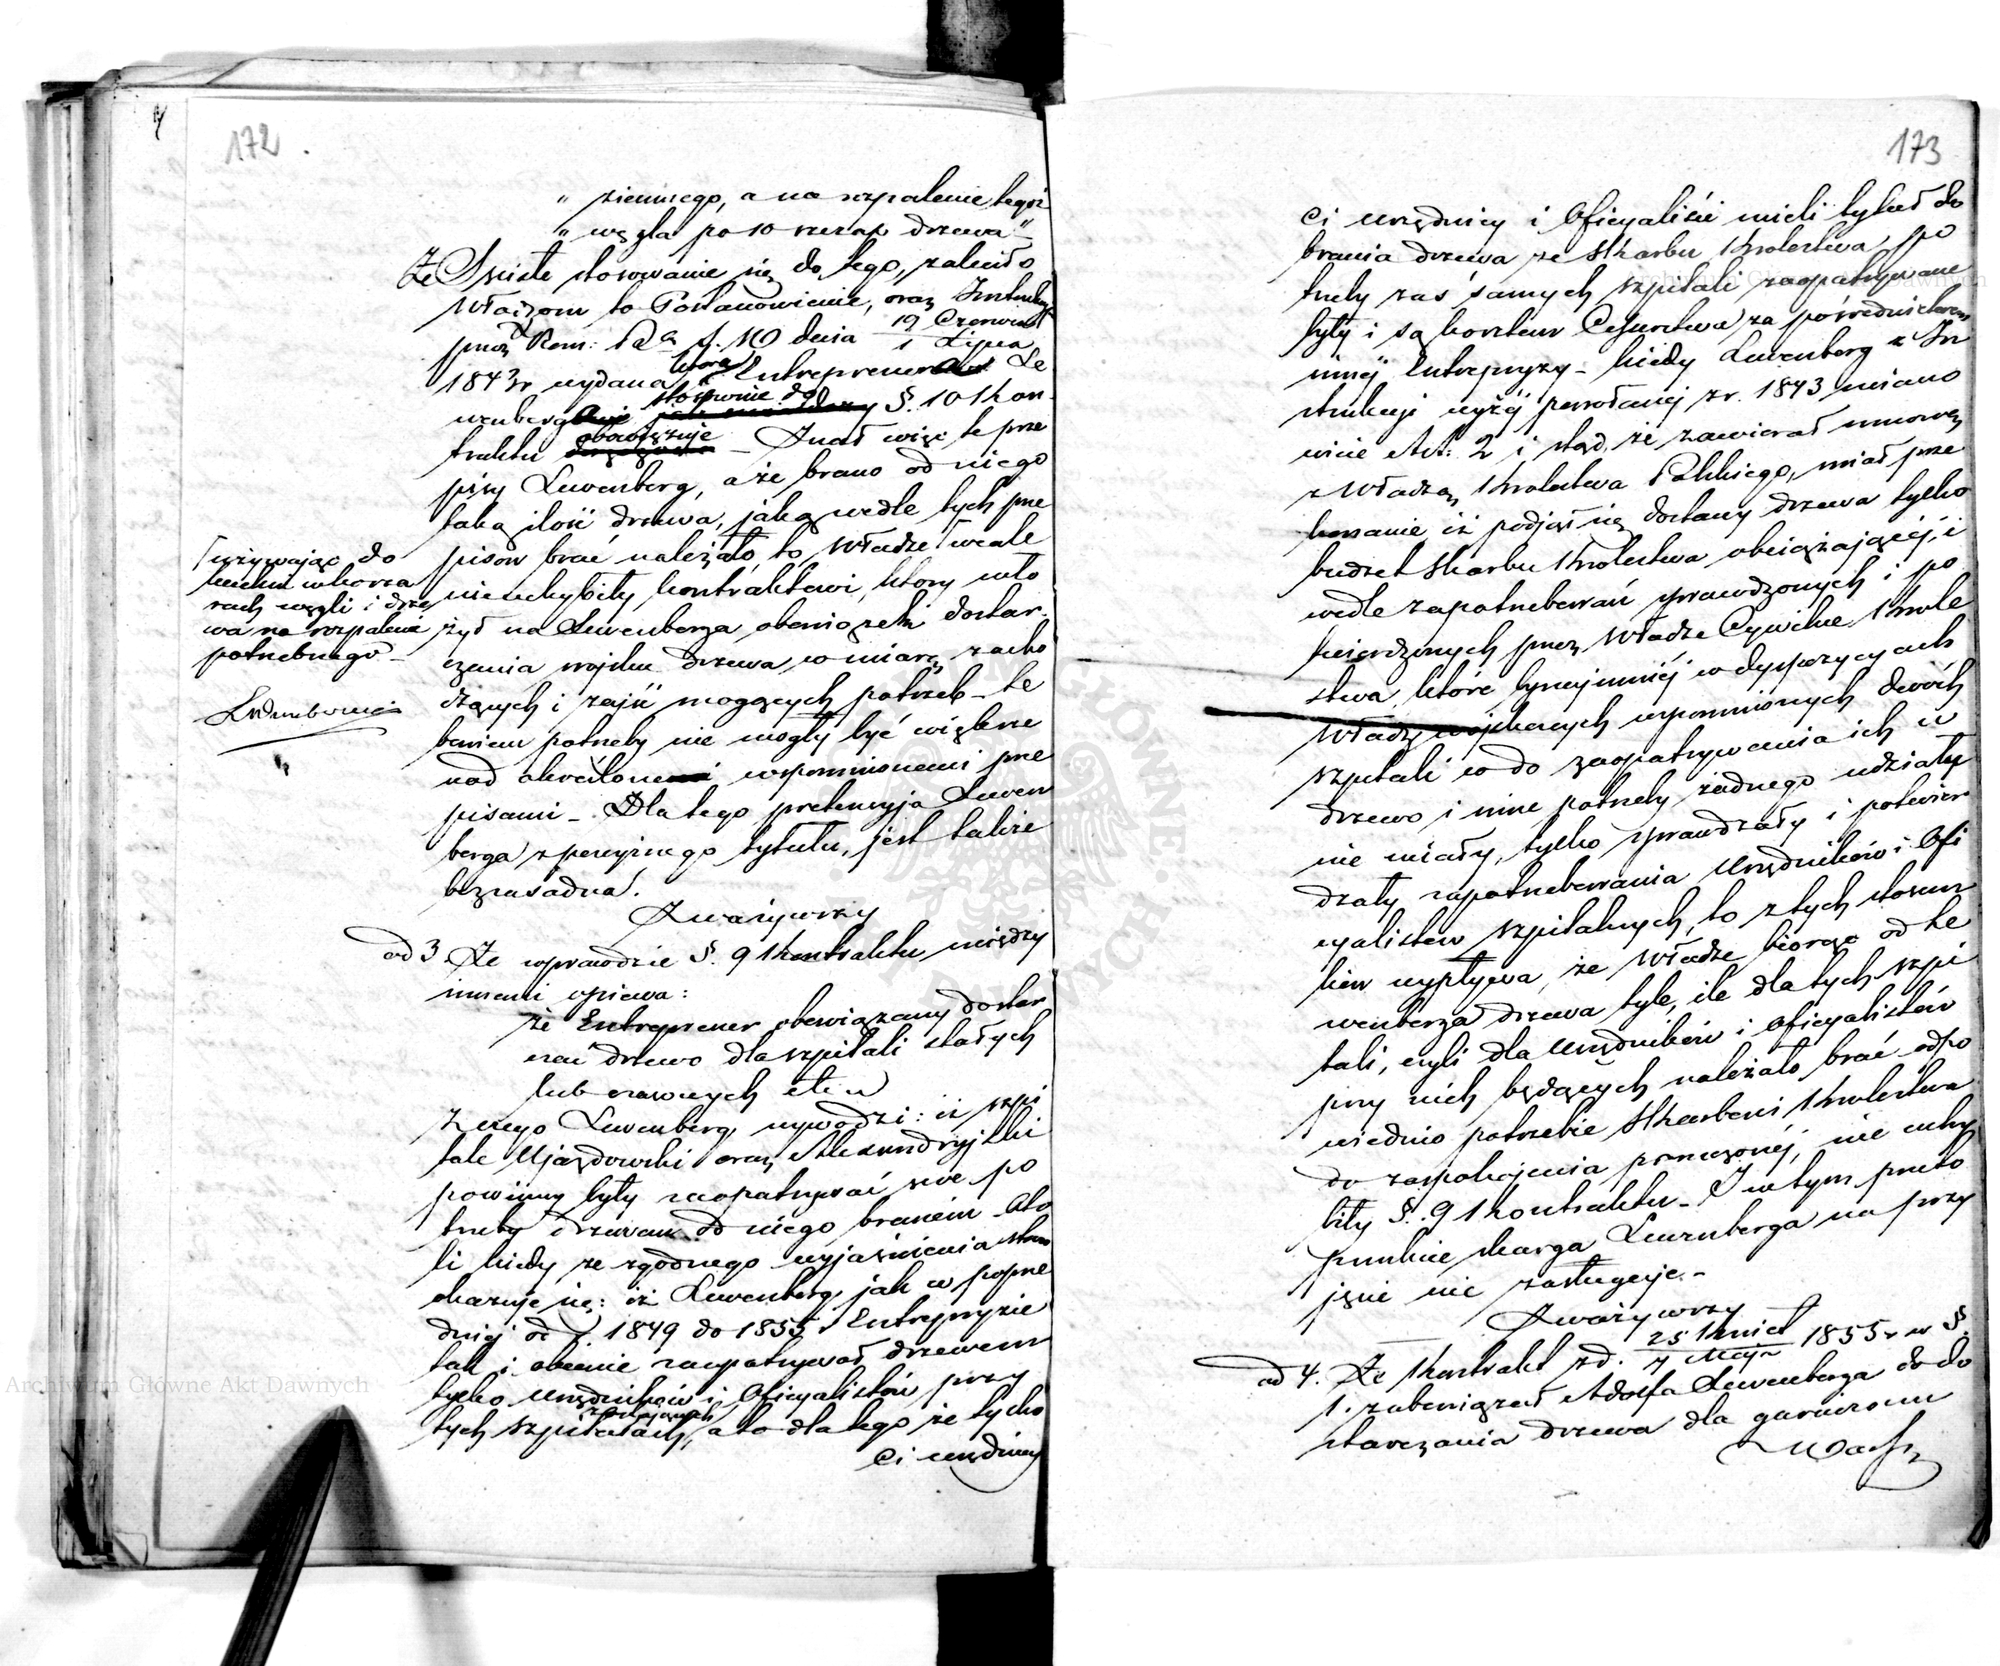 172
„ ziemnego, a na rozpalenie tegoż
„ węgla po 10 szczap drzewa"
Że Ściśle stosowanie się do tego, zaleciło
Władzom to Postanowienie, oraz Instrukcja
przez Kom: Rz. S. W. D dnia 19 Czerwca / 1 Lipca
1843 r wydana która Entreprenera Le
wenberga stosownie do §. 10 Kon
traktu obowiązuje – Znał więc te prze
pisy Lewenberg, a że brano od niego
taką ilość drzewa, jaką wedle tych prze
pisów brać należało, to Władze wcale
nieuchybiły kontraktowi, który wło
żył na Lewenberga obowiązek dostar
czania wojsku drzewa w miarę zacho
dzących i zajść mogących potrzeb – te
bowiem potrzeby nie mogły być większe
nad określone wspomnionemi prze
pisami – Dla tego pretensyja Lewen
berga z powyższego tytułu, jest także
bezzasadna.
używając do
kuchni w koszarach węgli i drze
wa na rozpalenie
potrzebnego –
Zważywszy
ad 3. Że wprawdzie §. 9 Kontraktu między
innemi opiewa:
że Entreprener obowiązany dostar
czać drzewo dla szpitali stałych
lub czasowych etc
Z czego Lewenberg wywodzi: iż szpi
tale Ujazdowski oraz Alexandryjski
powinny były zaopatrywać swe po
trzeby drzewem od niego branem – Ato
li kiedy ze zgodnego wyjaśnienia stron
okazuje się: iż Lewenberg, jak w poprze
dniej od r. 1849 do 1855 r Entrepryzie
tak i obecnie zaopatrywał drzewem
tylko Urzędników i Oficyalistów przy
tych szpitalach, a to dla tego że tylko
Ci urzędnicy
173
Ci urzędnicy i Oficyaliści mieli tytuł do
brania drzewa ze Skarbu Królestwa, po
trzeby zaś samych szpitali zaopatrywane
były i są kosztem Cesarstwa za pośrednictwem
innej Entrepryzy – kiedy Lewenberg z In
strukcji wyżej powołanej z r. 1843 miano
wicie Art: 2 i stąd, że zawierał umowę
z Władzą Królestwa Polskiego, miał prze
konanie iż podjął się dostawy drzewa tylko
budżet Skarbu Królestwa obciążającej, i
wedle zapotrzebowań sprawdzonych i po
twierdzonych przez Władze Cywilne Króle
stwa, które bynajmniej w dyspozycyach
Władz wojskowych wspomnionych dwóch
szpitali co do zaopatrywania ich w
drzewo i inne potrzeby żadnego udziału
nie miały, tylko sprawdzały i potwier
dzały zapotrzebowania Urzędników i Ofi
cyalistów szpitalnych, to z tych stosun
ków wypływa, że Władze biorąc od Le
wenberga drzewa tyle, ile dla tych szpi
tali, czyli dla Urzędników i Oficyalistów
przy nich będących należało brać odpo
wiednio potrzebie Skarbowi Królestwa
do zaspokojenia poruczonej, nie uchy
biły §. 9 Kontraktu – I w tym przeto
punkcie skarga Lewenberga na przy
jęcie nie zasługuje. –
Zważywszy
ad 4. Że Kontrakt z d. 25 Kwiet / 7 Maja 1855 r w §.
1. zobowiązał Adolfa Lewenberga do do
starczania drzewa dla garnizonu